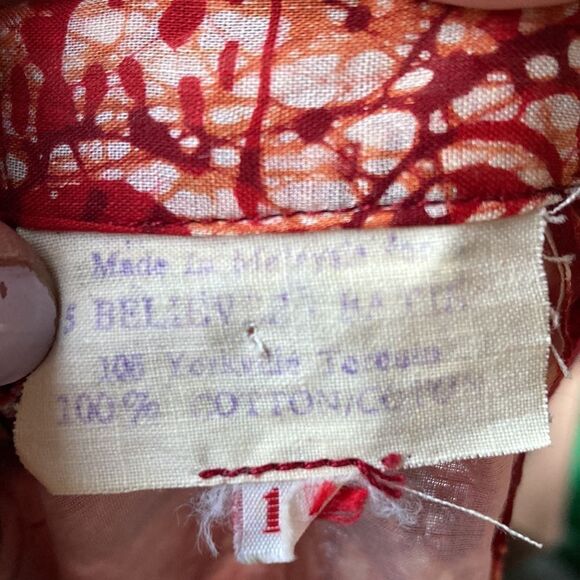 Made in Malaysia for
BELIEVE BATIK
106 Yorkville Toronto
100% COTTON/COTON
1